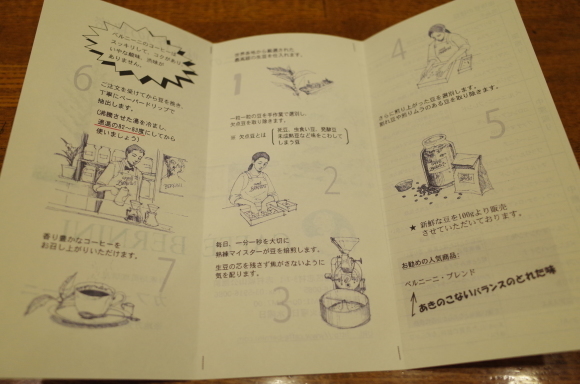 1
世界各地から厳選された
最高級の生豆を仕入れます。
一粒一粒の豆を手作業で選別し、
欠点豆を取り除きます。
※ 欠点豆とは
死豆、虫食い豆、発酵豆
未成熟豆など味をこわして
しまう豆
2
毎日、一分一秒を大切に
熟練マイスターが豆を焙煎します。
生豆の芯を残さず焦がさないように
気を配ります。
3
4
さらに煎り上がった豆を選別します。
割れ豆や煎りムラのある豆を取り除きます。
5
★ 新鮮な豆を100gより販売
させていただいております。
お勧めの人気商品:
ベルニーニ・ブレンド
あきのこないバランスのとれた味
ベルニーニのコーヒーは
スッキリして、コクがあり
いやな酸味、渋味が
ありません。
6
ご注文を受けてから豆を挽き、
丁寧にペーパードリップで
抽出します。
(沸騰させた湯を冷まし、
適温の82〜83度にしてから
使いましょう)
香り豊かなコーヒーを
お召し上がりいただけます。
7